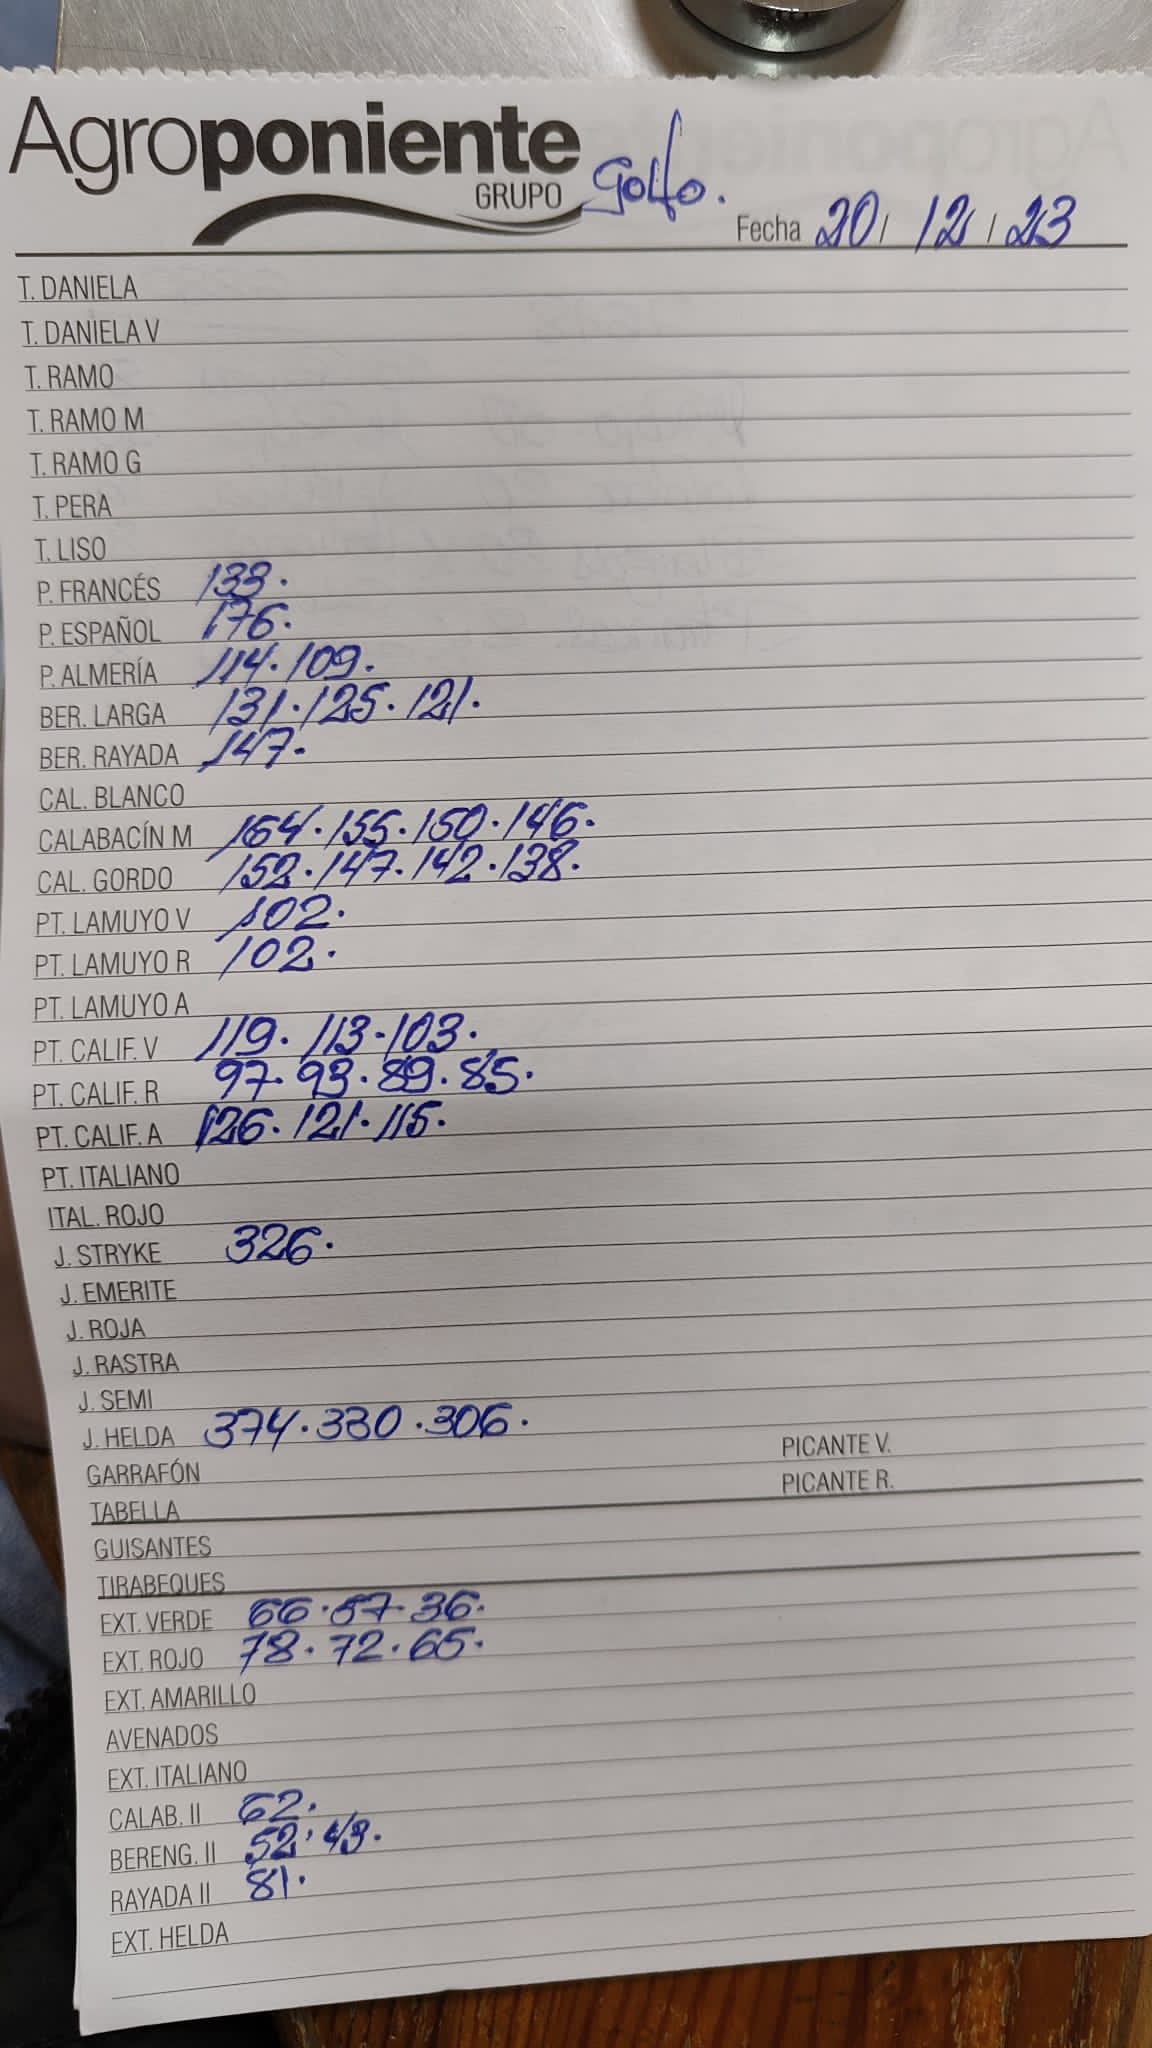 Agroponiente
GRUPO
Golfo.
Fecha 20/ 12 / 23
T. DANIELA
T. DANIELA V
T. RAMO
T. RAMO M
T. RAMO G
T. PERA
T. LISO
P. FRANCÉS 133.
P. ESPAÑOL 176.
P. ALMERÍA 114. 109.
BER. LARGA 131. 125. 121.
BER. RAYADA 147.
CAL. BLANCO
CALABACÍN M 164. 155. 150. 146.
CAL. GORDO 152. 147. 142. 138.
PT. LAMUYO V 102.
PT. LAMUYO R 102.
PT. LAMUYO A
PT. CALIF. V 119. 113. 103.
PT. CALIF. R 97. 93. 89. 85.
PT. CALIF. A 126. 121. 115.
PT. ITALIANO
ITAL. ROJO
J. STRYKE 326.
J. EMERITE
J. ROJA
J. RASTRA
J. SEMI
J. HELDA 374. 330. 306.
GARRAFÓN PICANTE V.
TABELLA PICANTE R.
GUISANTES
TIRABEQUES
EXT. VERDE 66. 57. 36.
EXT. ROJO 78. 72. 65.
EXT. AMARILLO
AVENADOS
EXT. ITALIANO
CALAB. II 62.
BERENG. II 52. 43.
RAYADA II 81.
EXT. HELDA